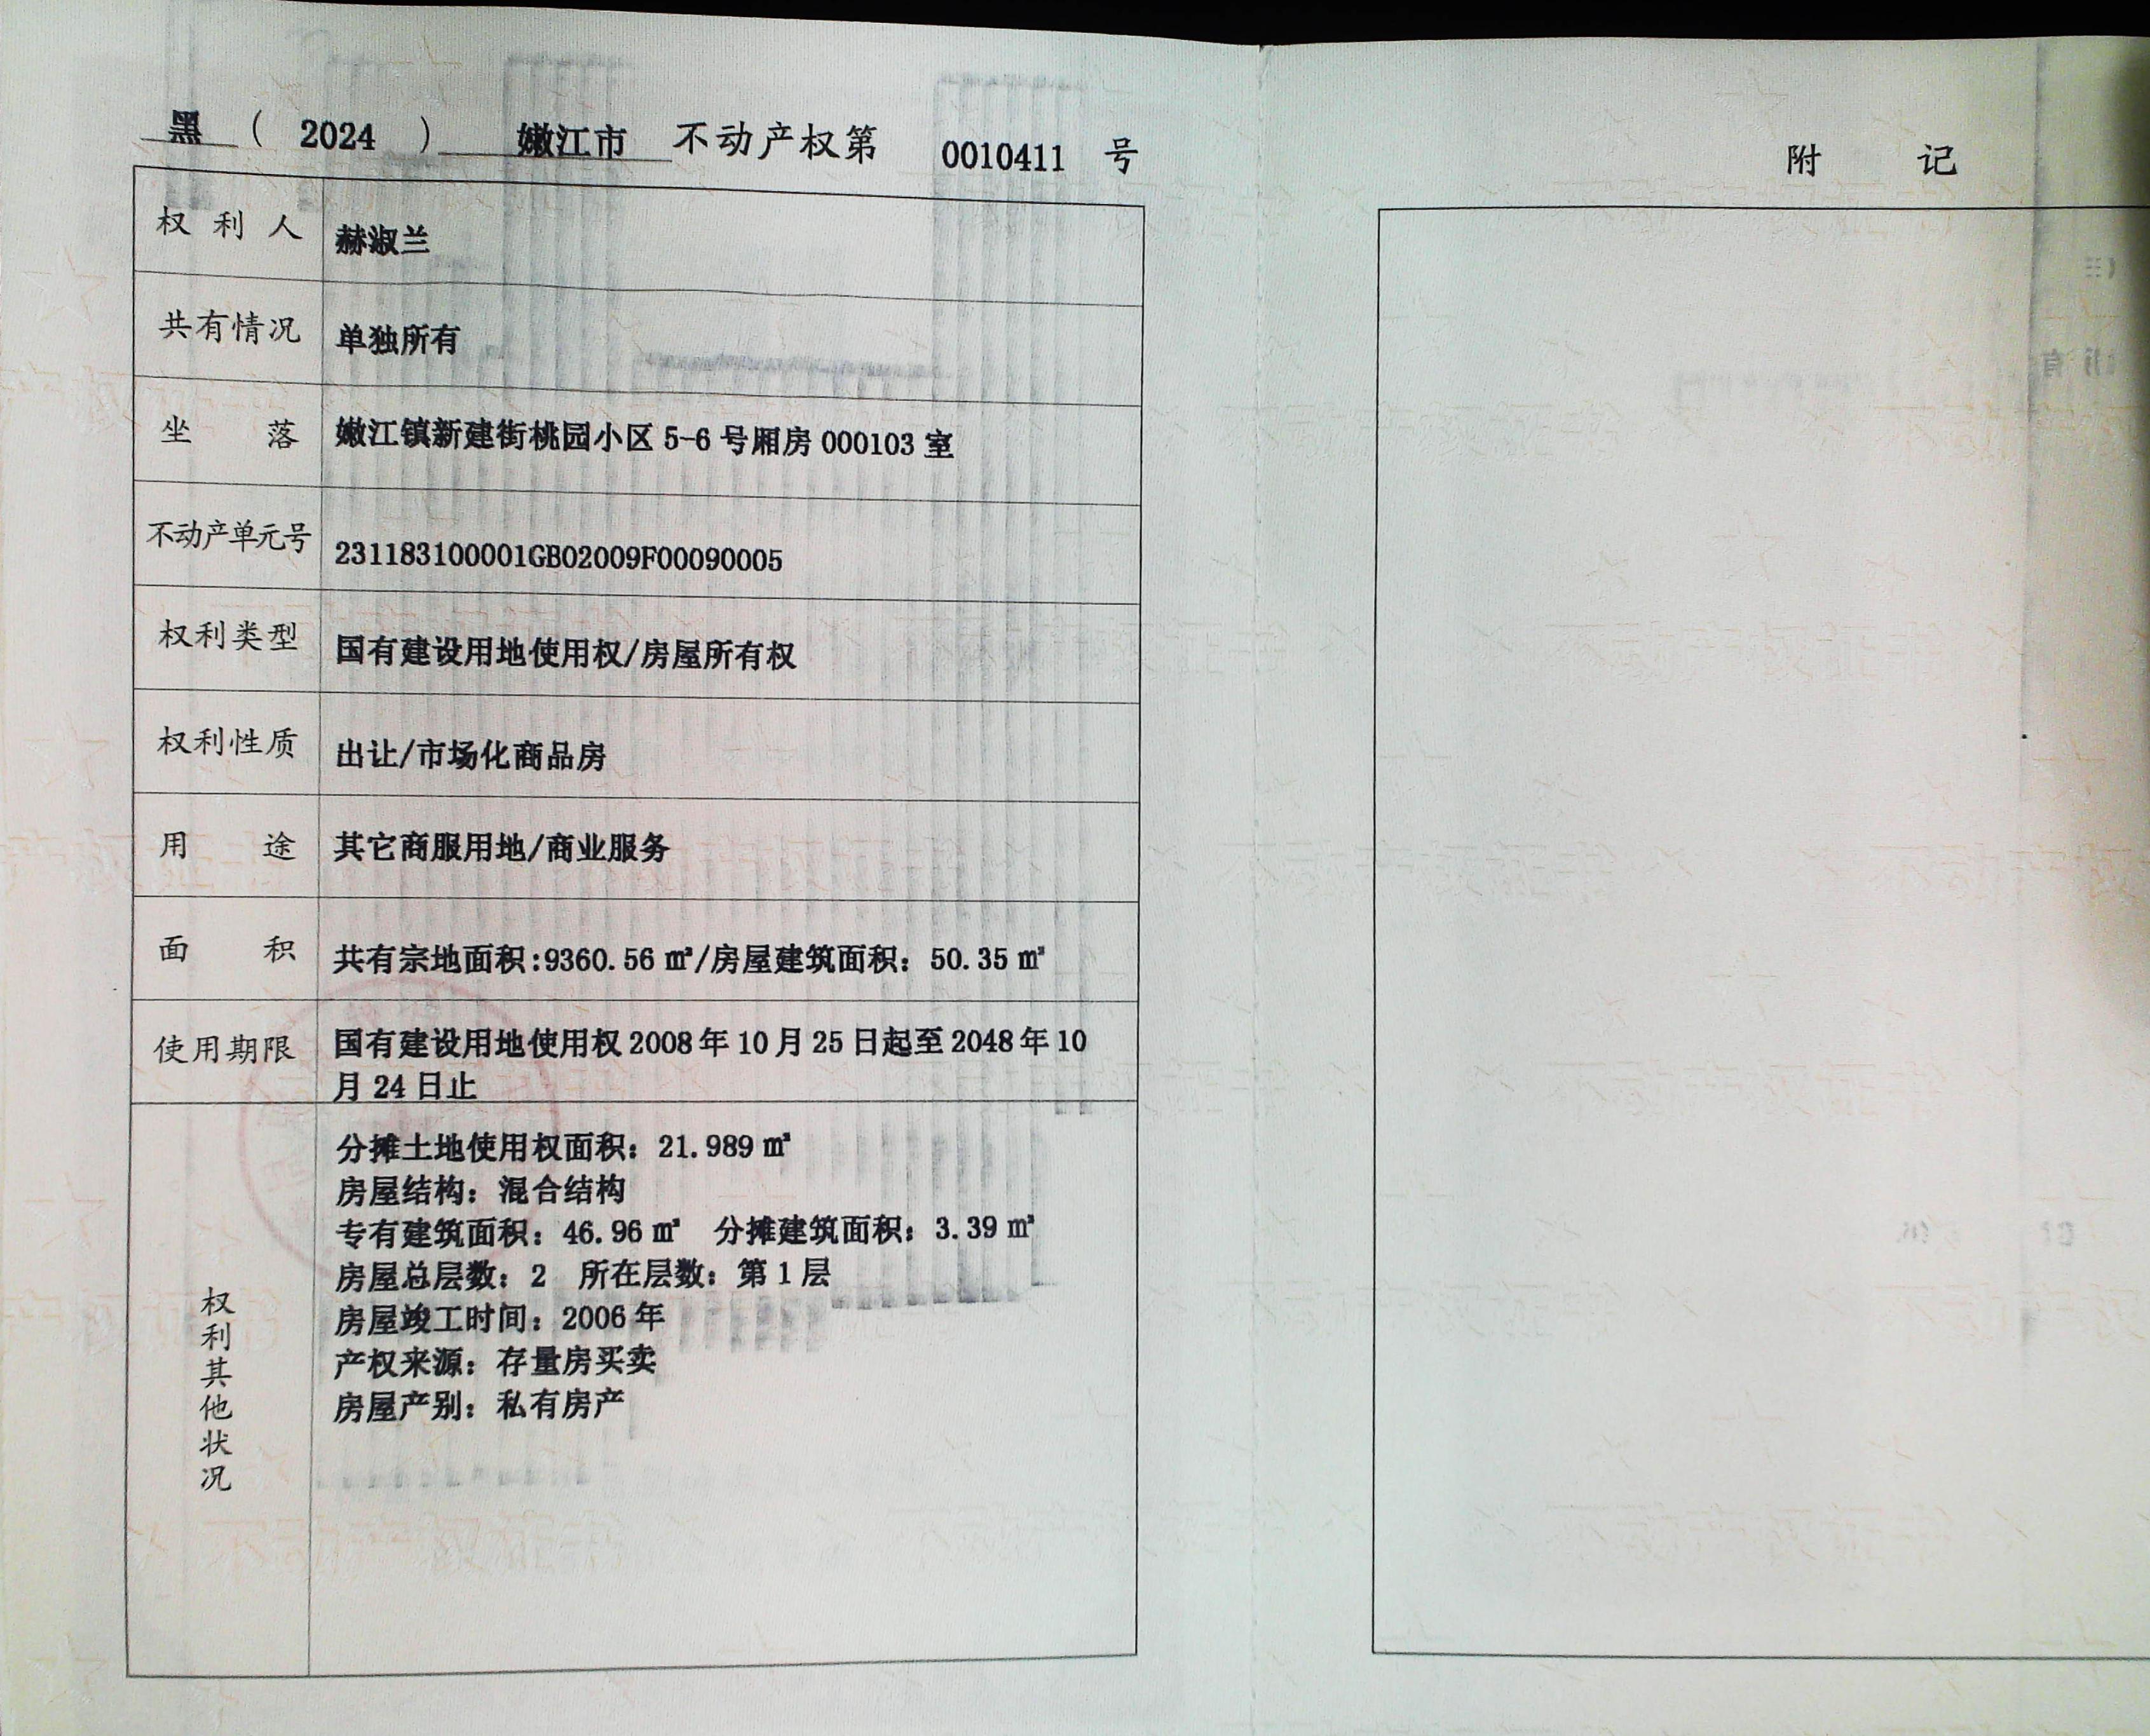 黑 ( 2024 ) 嫩江市 不动产权第 0010411 号
权利人 赫淑兰
共有情况 单独所有
坐落 嫩江镇新建街桃园小区 5-6 号厢房 000103 室
不动产单元号 231183100001GB02009F00090005
权利类型 国有建设用地使用权/房屋所有权
权利性质 出让/市场化商品房
用途 其它商服用地/商业服务
面积 共有宗地面积:9360.56 ㎡/房屋建筑面积：50.35 ㎡
使用期限 国有建设用地使用权 2008 年 10 月 25 日起至 2048 年 10
月 24 日止
权利其他状况
分摊土地使用权面积：21.989 ㎡
房屋结构：混合结构
专有建筑面积：46.96 ㎡ 分摊建筑面积：3.39 ㎡
房屋总层数：2 所在层数：第 1 层
房屋竣工时间：2006 年
产权来源：存量房买卖
房屋产别：私有房产
附记